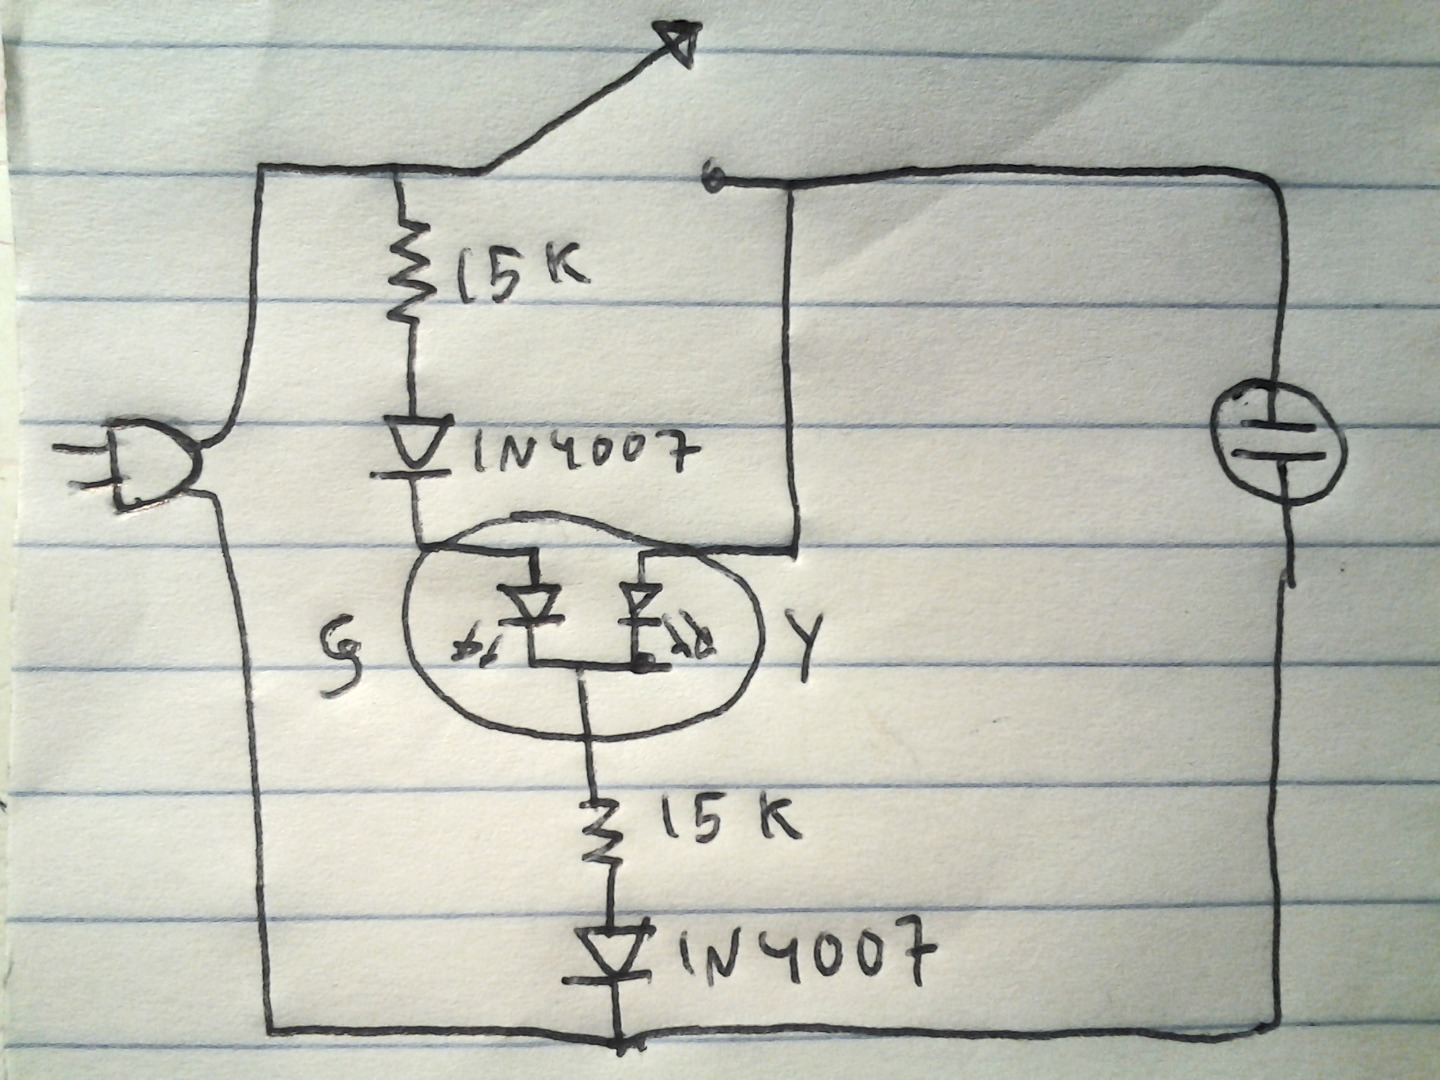 15K
1N4007
G
Y
15K
1N4007